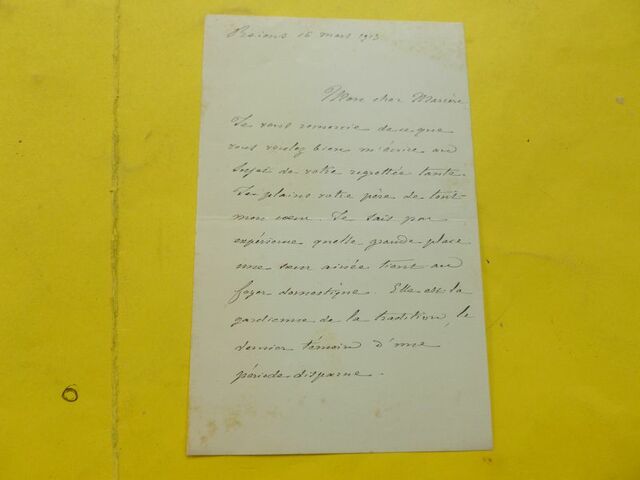 Reims 16 mars 1913
Mon cher Marière
Je vous remercie de ce que
vous voulez bien m'écrire au
sujet de votre regrettée tante.
Je plains votre père de tout
mon cœur. Je sais par
expérience quelle grande place
une sœur ainée tient au
foyer domestique. Elle est la
gardienne de la tradition, le
dernier témoin d'une
période disparue.